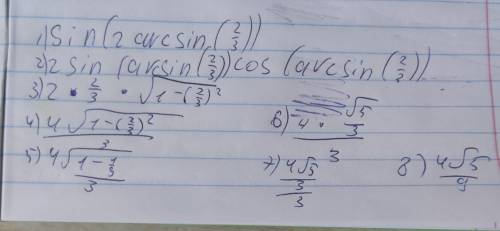 1) Sin(2 arcsin(2/3))
2) 2 sin(arcsin(2/3)) cos(arcsin(2/3))
3) 2 • 2/3 • √(1-(2/3)²)
4) 4√(1-(2/3)²)/3
5) 4√(1-1/3)/3
6) 4 • √5/3 / 3
7) 4√5/3 / 3
8) 4√5/9